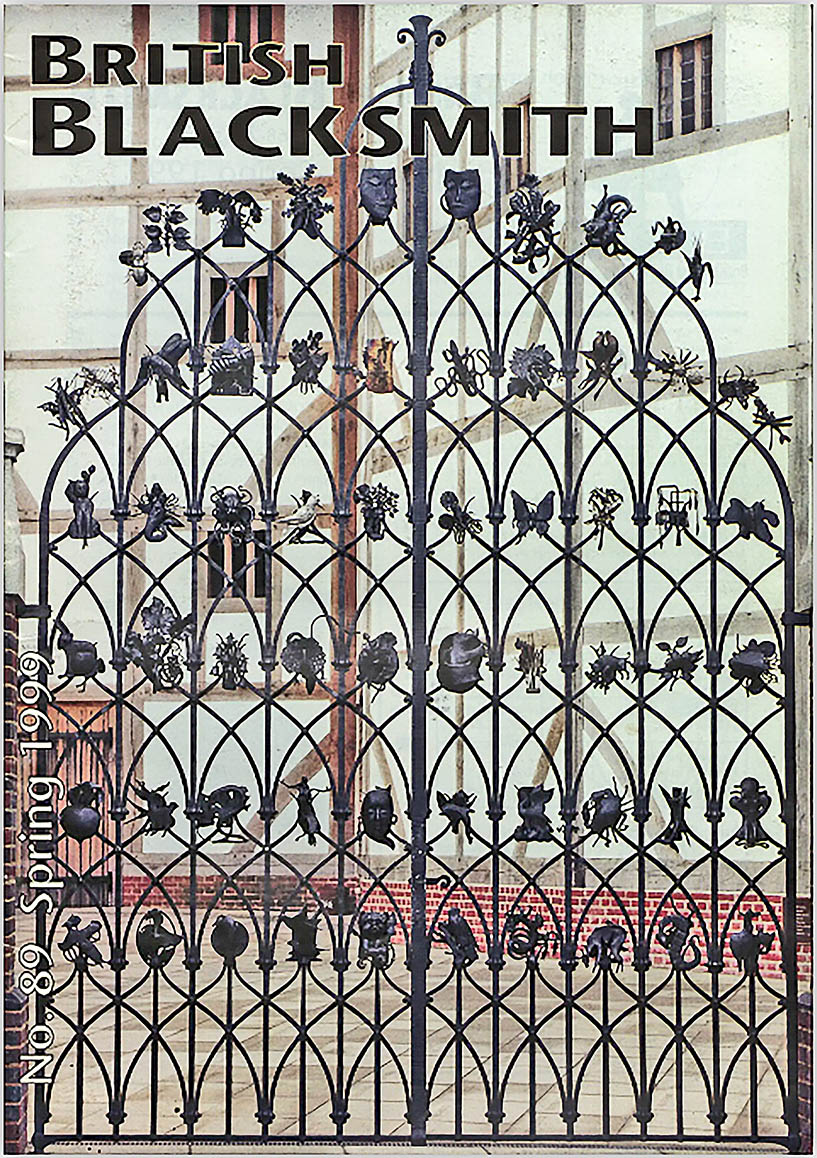 BRITISH
BLACKSMITH
No. 89 Spring 1999